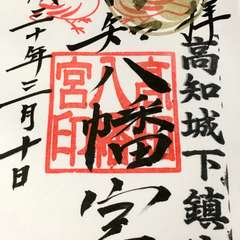 拝高知城下鎮
八幡宮
高知八幡宮印
三十年三月十日